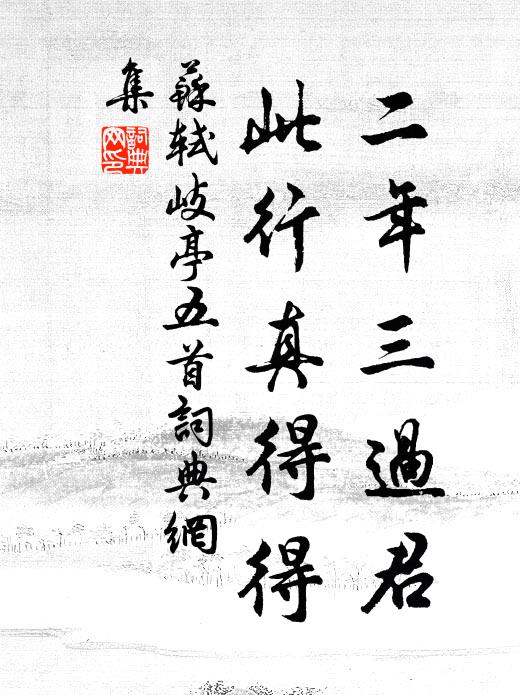 二年三過君
此行真得得
蘇軾岐亭五首詞典網
集
詞典
网印